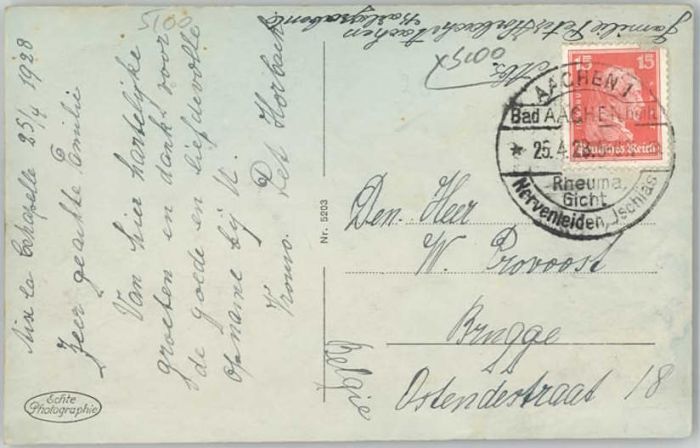 Aix la Chapelle 25/4 1928
Zeer geachte Familie
Van hier hartelijke
groeten en dank voor
de goede en liefdevolle
opname bij U.
Fet Horbach
5100
Abs.
Familie Peter Horbach Aachen
Nr. 5203
15 15
Deutsches Reich
AACHEN 1
Bad AACHEN heilt
* 25.4.28.
Rheuma,
Gicht
Nervenleiden, Ischias
Den Heer
W. Provoost
Brugge
Ostendestraat 18
Belgie
Echte
Photographie